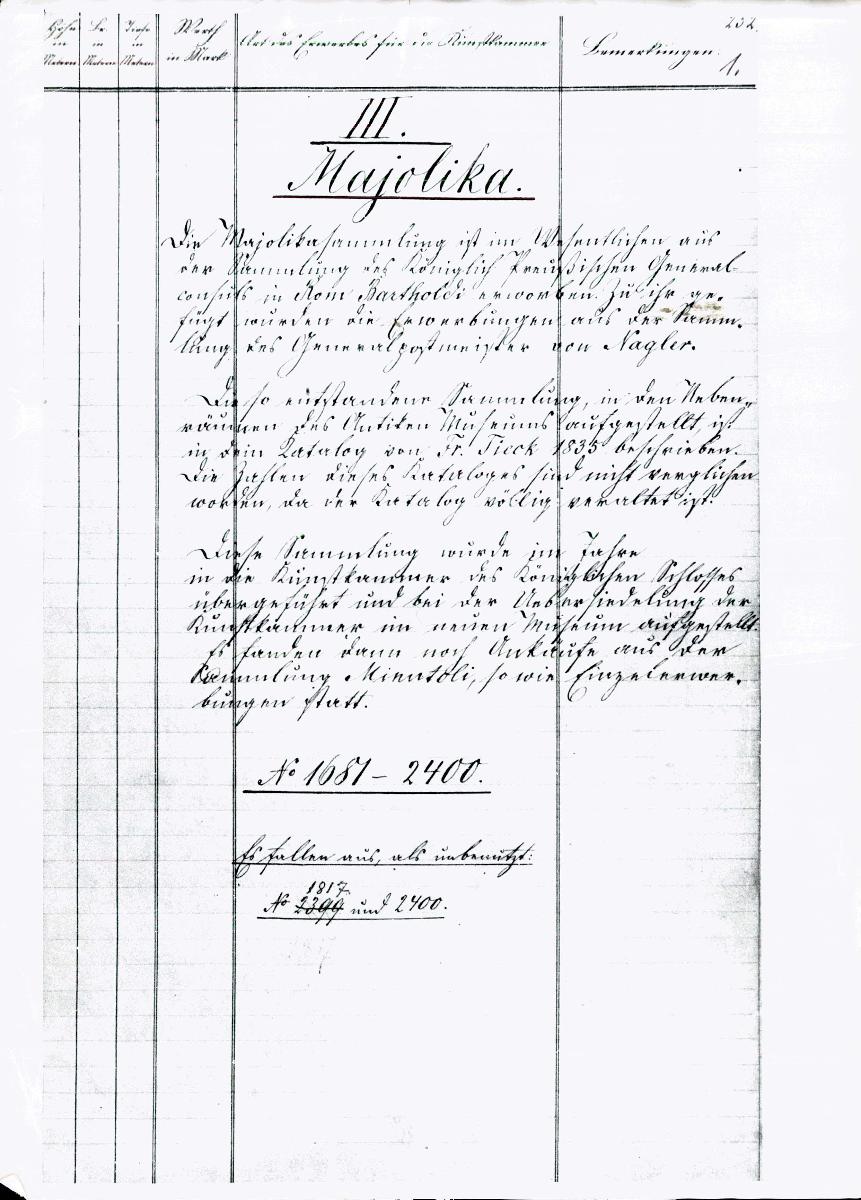 232.
Höhe in Metern
Br. in Metern
Tiefe in Metern
Werth in Mark
Art des Erwerbes für die Kunstkammer
Bemerkungen.
1.
III.
Majolika.
Die Majolikasammlung ist im Wesentlichen aus
der Sammlung des Königlich Preußischen General-
consuls in Rom Bartholdi erworben. Zu ihr ge-
fügt wurden die Erwerbungen aus der Samm-
lung des Generalpostmeister von Nagler.
Die so entstandene Sammlung, in den Neben-
räumen des Antiken Museums aufgestellt, ist
in dem Katalog von Fr. Tieck 1835 beschrieben.
Die Zahlen dieses Kataloges sind nicht verglichen
worden, da der Katalog völlig veraltet ist.
Diese Sammlung wurde im Jahre
in die Kunstkammer des Königlichen Schlosses
übergeführt und bei der Uebersiedelung der
Kunstkammer im neuen Museum aufgestellt.
Es fanden dann noch Ankäufe aus der
Sammlung Minutoli, sowie Einzelerwer-
bungen statt.
No 1681 – 2400.
Es fallen aus, als unbenutzt:
1817
No 2399 und 2400.